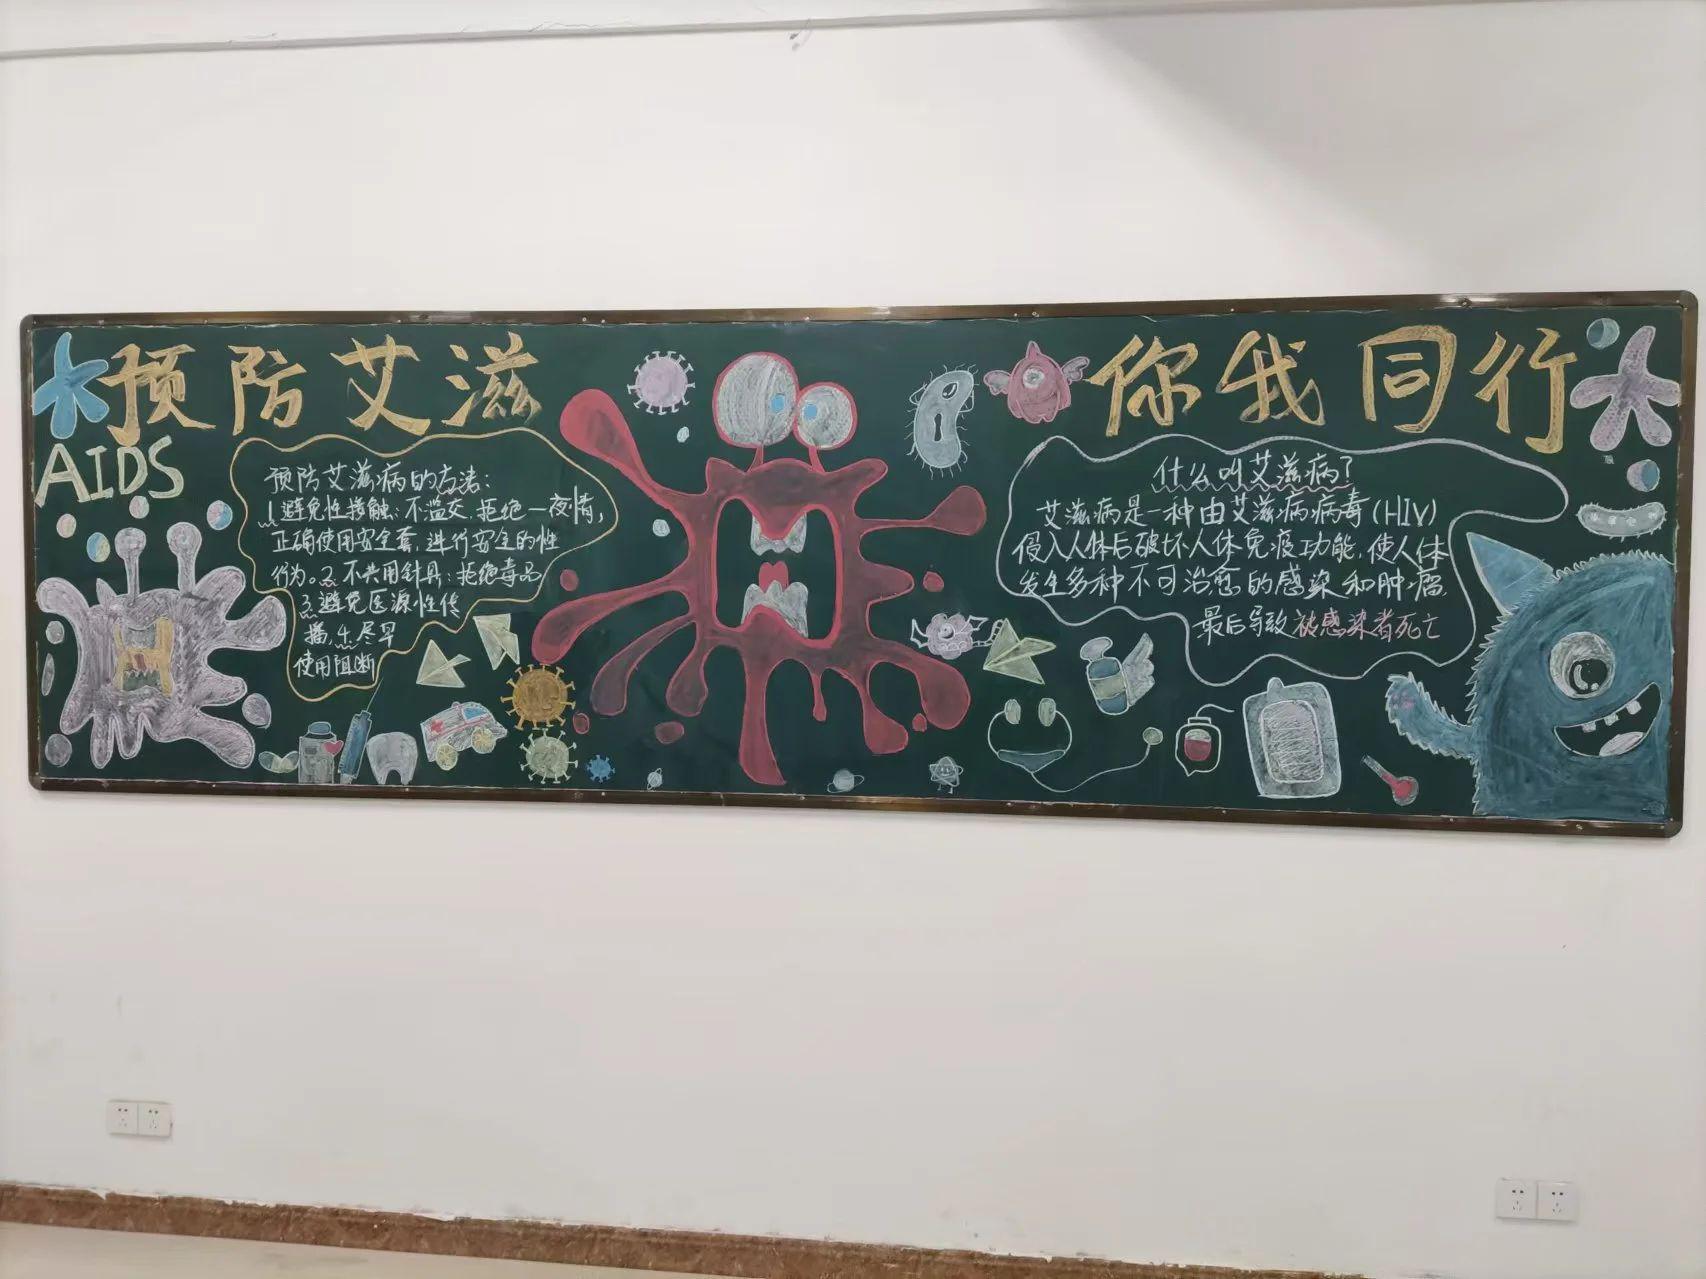 预防艾滋
AIDS
预防艾滋病的方法：
1.避免性接触：不滥交，拒绝一夜情，
正确使用安全套，进行安全的性
行为。2.不共用针具：拒绝毒品
3.避免医源性传
播，4.尽早
使用阻断
你我同行
什么叫艾滋病？
艾滋病是一种由艾滋病病毒(HIV)
侵入人体后破坏人体免疫功能，使人体
发生多种不可治愈的感染和肿瘤，
最后导致被感染者死亡